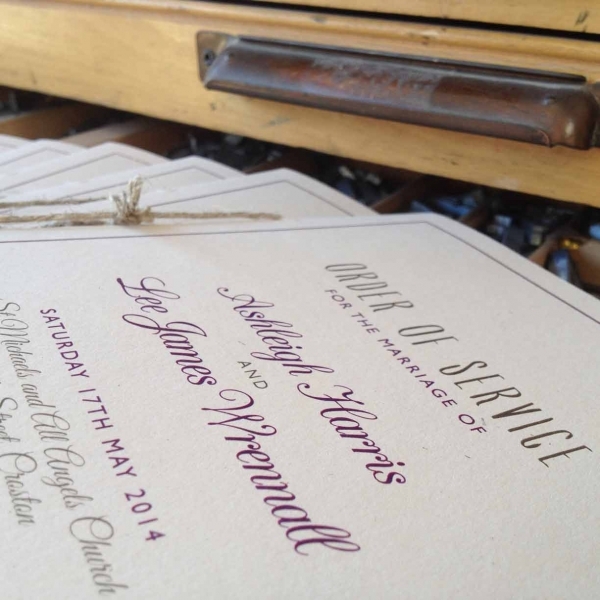 ORDER OF SERVICE
FOR THE MARRIAGE OF
Ashleigh Harris
AND
Lee James Wrennall
SATURDAY 17TH MAY 2014
St Michaels and All Angels Church
Street Croston